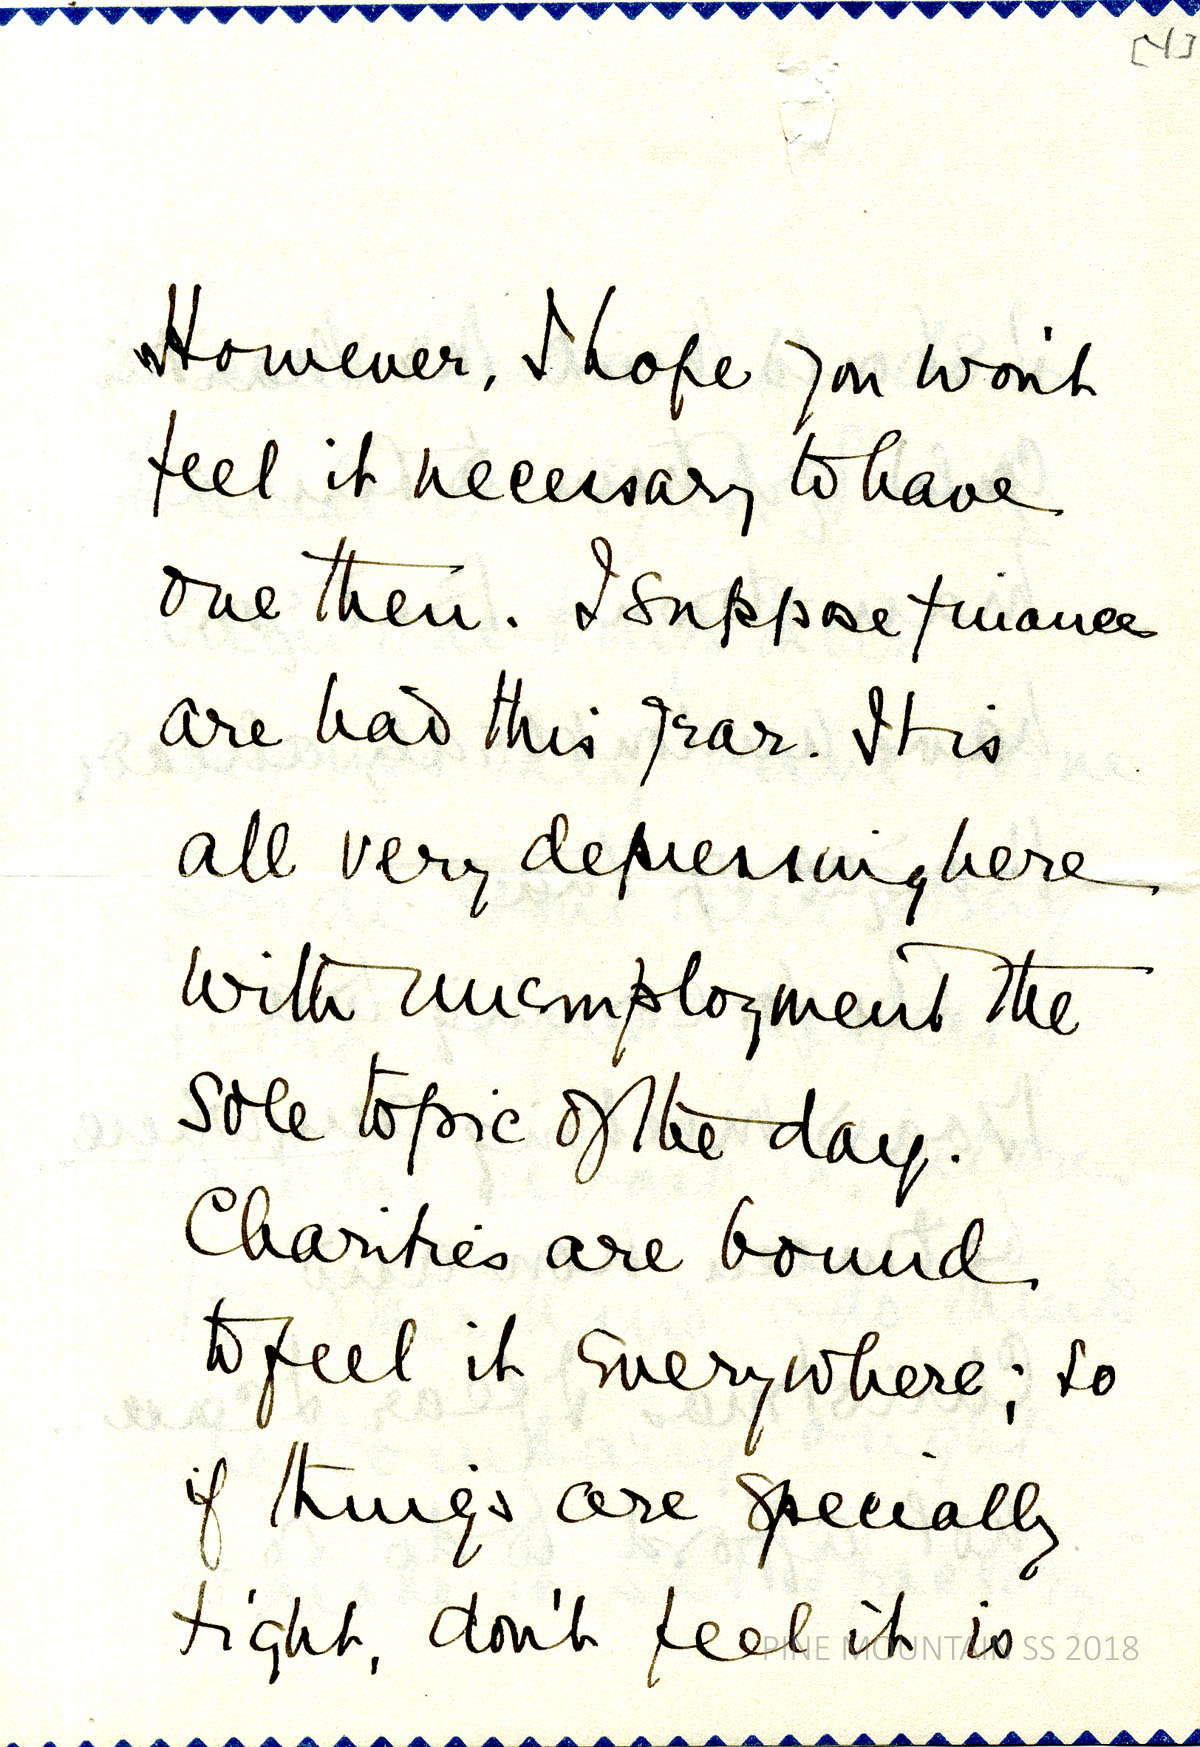 [4]
However, I hope you won't
feel it necessary to have
one then. I suppose finances
are bad this year. It is
all very depressing here
with unemployment the
sole topic of the day.
Charities are bound
to feel it everywhere; so
if things are specially
tight, don't feel it is
PINE MOUNTAIN SS 2018